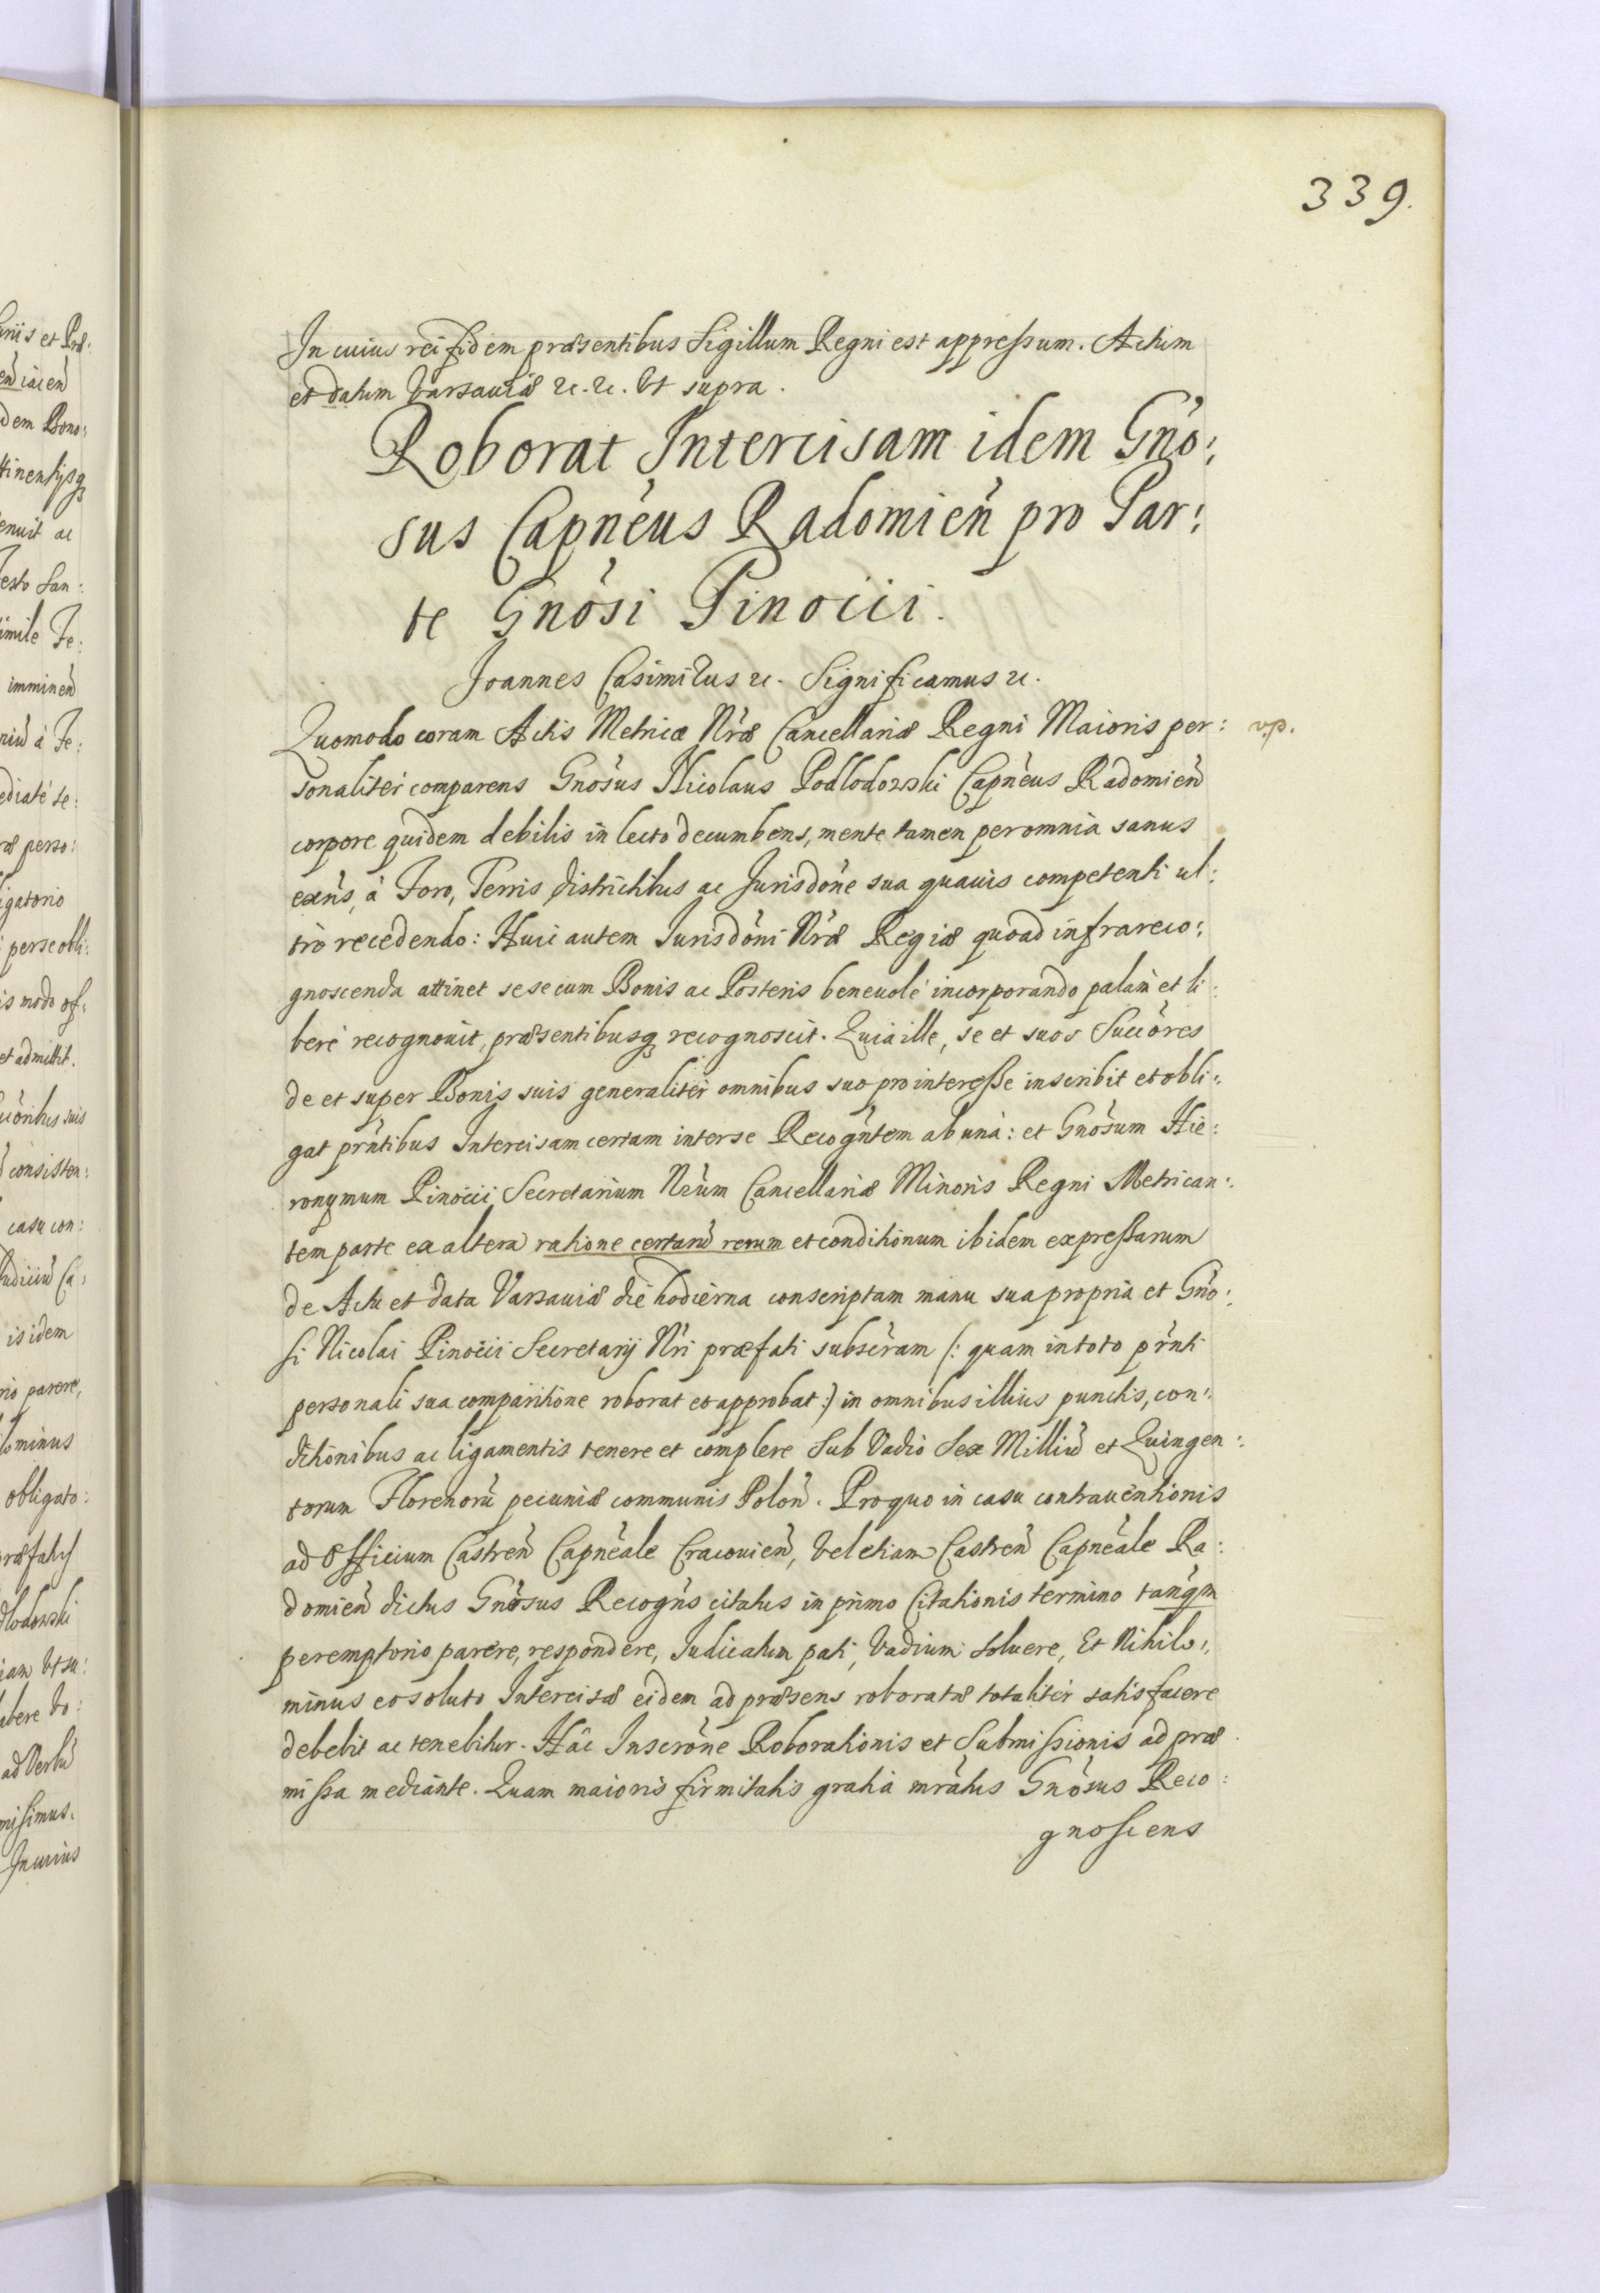 339.
In cuius rei fidem præsentibus Sigillum Regni est appressum. Actum
et datum Varsaviæ etc. etc. Vt supra.
Roborat Intercisam idem Gno:
sus Capneus Radomien pro Par:
te Gnosi Pinocii.
Joannes Casimirus etc. Significamus etc.
Quomodo coram Actis Metricæ Nræ Cancellariæ Regni Maioris per: v.p.
sonaliter comparens Gnosus Nicolaus Podlodowski Capneus Radomien
corpore quidem debilis in lecto decumbens, mente tamen per omnia sanus
exns, à Foro, Terris districtibus ac Jurisdone sua quavis competenti ul:
tro recedendo: Huic autem Jurisdoni Nræ Regiæ quoad infrareco:
gnoscenda attinet sese cum Bonis ac Posteris benevolé incorporando palam et li:
beré recognovit, præsentibusq recognoscit. Quia ille, se et suos Succores
de et super Bonis suis generaliter omnibus suo pro interesse inscribit et obli:
gat prntibus Intercisam certam inter se Recogntem ab una: et Gnosum Hie:
ronymum Pinocii Secretarium Nrum Cancellariæ Minoris Regni Metrican:
tem parte ex altera ratione certaru rerum et conditionum ibidem expressarum
de Actu et data Varsaviæ die hodierna conscriptam manu sua propria et Gno:
si Nicolai Pinocii Secretarij Nri præfati subscram (: quam in toto prnti
personali sua comparitione roborat et approbat:) in omnibus illius punctis, con:
ditionibus ac ligamentis tenere et complere Sub Vadio Sex Milliu et Quingen:
torum Florenoru pecuniæ communis Polon. Pro quo in casu contraventionis
ad Officium Castren Capneale Cracovien, Vel etiam Castren Capneale Ra:
domien dictus Gnosus Recogns citatus in primo Citationis termino tanqm
peremptorio parere, respondere, Judicatum pati, Vadium soluere, Et Nihilo:
minus eo soluto Intercisæ eidem ad præsens roboratæ totaliter satisfacere
debebit ac tenebitur. Hac Inscrone Roborationis et Submissionis ad præ
missa mediante. Quam maioris firmitatis gratia mratus Gnosus Reco:
gnoscens